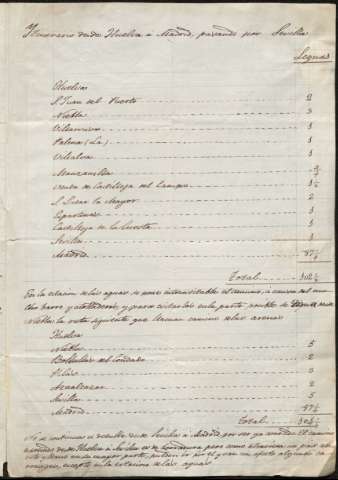 Itinerario desde Huelva a Madrid, pasando por Sevilla
Leguas
Huelva
S. Juan del Puerto 2
Niebla 3
Villarrasa 1
Palma (La) 1
Villalba 1
Manzanilla
Venta de Castilleja del Campo 1½
S. Lucar la Mayor 2
Espartinas 1
Castilleja de la Cuesta 1
Sevilla 1
Madrid 87½
Total 102½
En la estacion de las aguas se pone intransitable el camino, a causa del mu-
cho barro y atolladeros, y para evitarlos en la parte
Niebla la ruta siguiente que llaman camino de las arenas
Huelva
Niebla 5
Bollullos del Condado 2
Pilas
Aznalcazar 2
Sevilla 5
Madrid 87½
Total 104½
No se continua el detalle desde Sevilla a Madrid por ser ya
desde Huelva a Sevilla es de herradura pero como atraviesa un pais
en la mayor parte, pueden ir por el
carruages, excepto en la estacion de las aguas